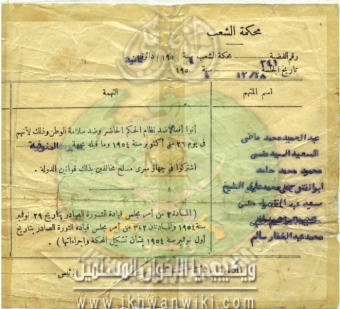 محكمة الشعب
رقم القضية ٢٤١ محكمة الشعب سنة ١٩٥٤ دائرة ثانية
تاريخ الجلسة ٢٨/١٢/١٩٥٤
اسم المتهم
التهمة
عبد الحميد محمد ماضى
السعيد السيد
محمد محمد حامد
الشيخ
سعيد عبد
محمد عبد الغفار سالم
أتوا أفعالا ضد نظام الحكم الحاضر وضد سلامة الوطن وذلك لأنهم
فى يوم ٢٦ من أكتوبر سنة ١٩٥٤ وما قبله بجهة المنوفية
اشتركوا فى جهاز سرى مسلح مخالفين بذلك قوانين الدولة .
(المادة ٣ من أمر مجلس قيادة الثورة الصادر بتاريخ ٢٩ نوفمبر
سنة ١٩٥٤ والمادتان ٣،٢ من أمر مجلس قيادة الثورة الصادر بتاريخ
أول نوفمبر سنة ١٩٥٤ بشأن تشكيل المحكمة وإجراءاتها)
ويكيبيديا الإخوان المسلمين
www.ikhwanwiki.com